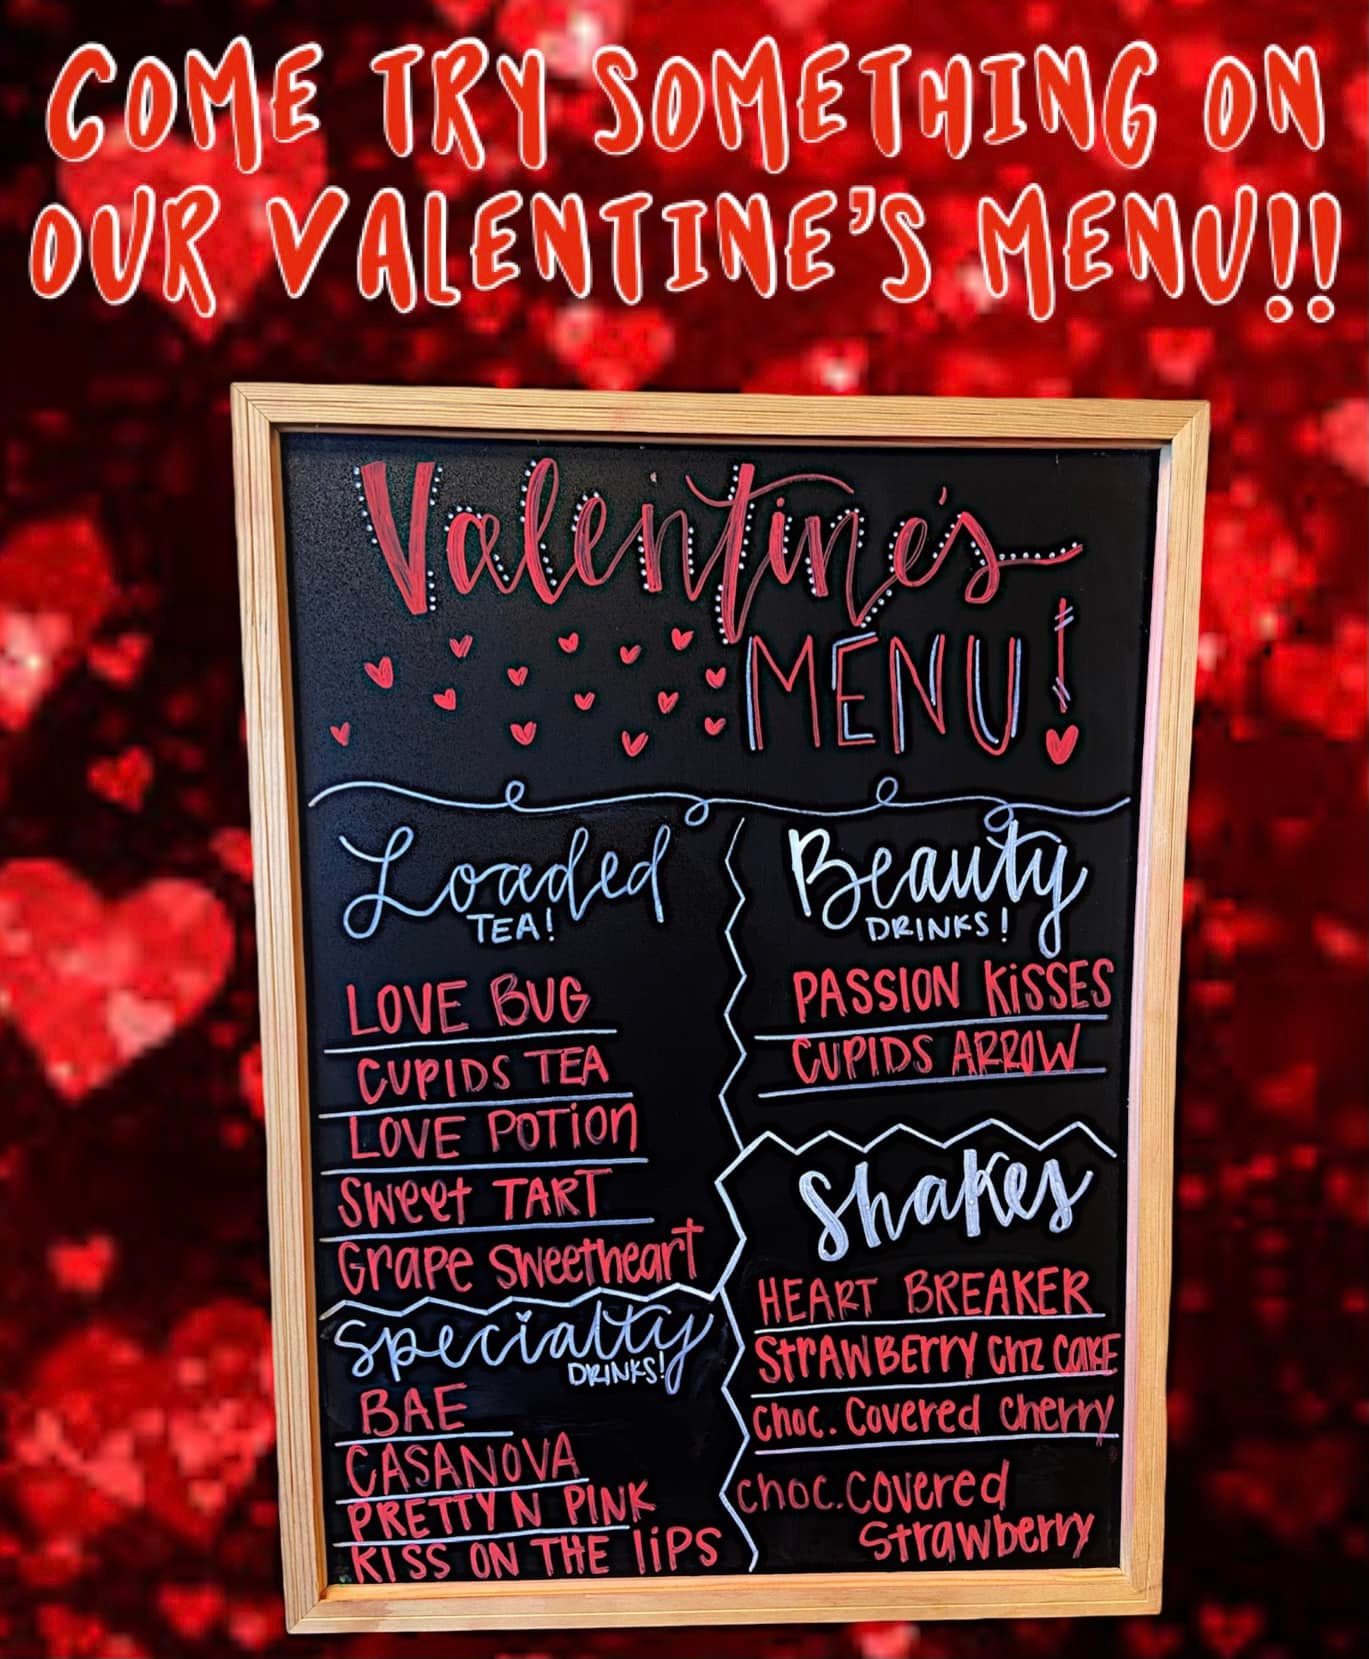 COME TRY SOMETHING ON
OUR VALENTINE'S MENU!!
Valentine's
MENU!
Loaded
TEA!
LOVE BUG
CUPIDS TEA
LOVE POTION
Sweet TART
Grape Sweetheart
Specialty
DRINKS!
BAE
CASANOVA
PRETTY N PINK
KISS ON THE LIPS
Beauty
DRINKS!
PASSION KISSES
CUPIDS ARROW
Shakes
HEART BREAKER
STRAWBERRY CHZ CAKE
CHOC. COVERED CHERRY
CHOC. COVERED
STRAWBERRY